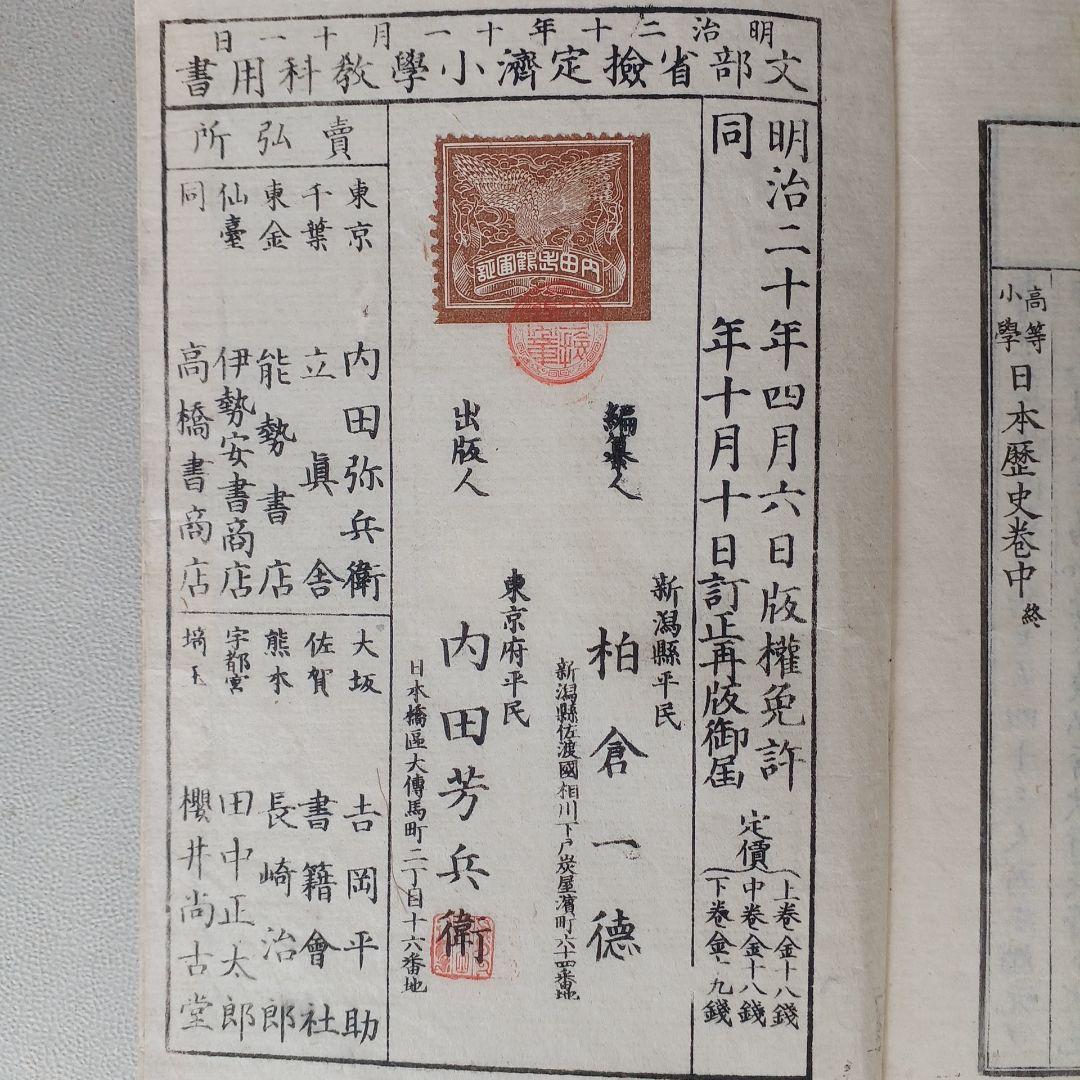 高等
小學
日本歷史卷中 終
明治二十年十一月十一日
文部省撿定濟小學敎科用書
明治二十年四月六日版權免許
同年十月十日訂正再版御届
定價
上卷金十八錢
中卷金十八錢
下卷金十九錢
編纂人
新潟縣平民
柏倉一德
新潟縣佐渡國相川下戶炭屋濱町六十四番地
出版人
東京府平民
內田芳兵衛
日本橋區大傳馬町二丁目十六番地
賣弘所
東京 內田弥兵衛
千葉 立眞舍
東金 能勢書店
仙臺 伊勢安書商店
同 高橋書商店
大坂 吉岡平助
佐賀 書籍會社
熊本 長崎治郎
宇都宮 田中正太郎
埼玉 櫻井尚古堂